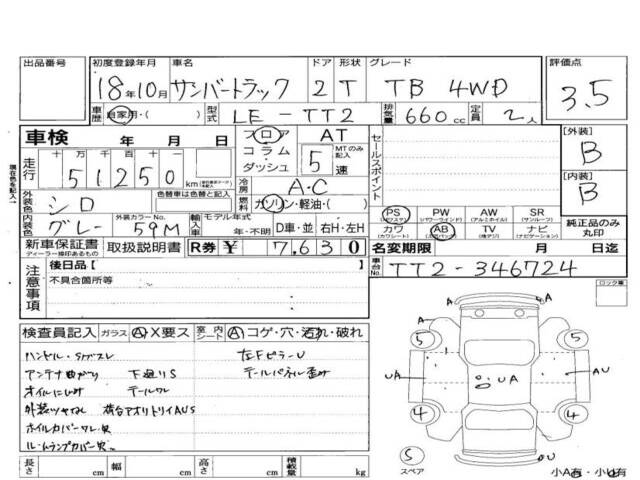 出品番号 初度登録年月 車名 ドア 形状 グレード 評価点
18年10月 サンバートラック 2 T TB 4WD 3.5
車歴 自家用・( ) 型式 LE-TT2 排気量 660cc 定員 2人
車検 年 月 日 フロア AT
コラム MTのみ記入
ダッシュ 5速
走行 十万千百十一
51250 km
セールスポイント
【外装】
B
【内装】
B
現在色を記入
外装色 シロ 色替車は色替と記入 冷房 A・C
燃料 ガソリン・軽油・( )
PS PW AW SR
(パワステ) (パワーウインド) (アルミホイル) (サンルーフ)
カワ AB TV ナビ
(カワシート) (エアバッグ) (ナビゲーション)
純正品のみ丸印
内装色 グレー 外装カラーNo. 59M 輸入車 モデル年式 年・不明 D車・並 右H・左H
新車保証書 取扱説明書 R券 ¥ 7,630
ディーラー捺印あるもの
名変期限 月 日迄
注意事項 後日品【 】
不具合箇所等
車台No. TT2-346724
ロック車
検査員記入 ガラス A・X要ス 室内シート A コゲ・穴・汚れ・破れ
ハンドル・Sノブスレ 左FピラーU
アンテナ曲がり 下廻りS テールパネル歪み
オイルにじみ テールワレ
外装ツヤなし 荷台アオリトリイAUS
ホイルカバーワレ・欠
ルームランプカバー欠
A A
5 5
UA UA AU
4 4
5 U
スペア 小A有・小U有
長さ cm 幅 cm 高さ cm 積載量 kg